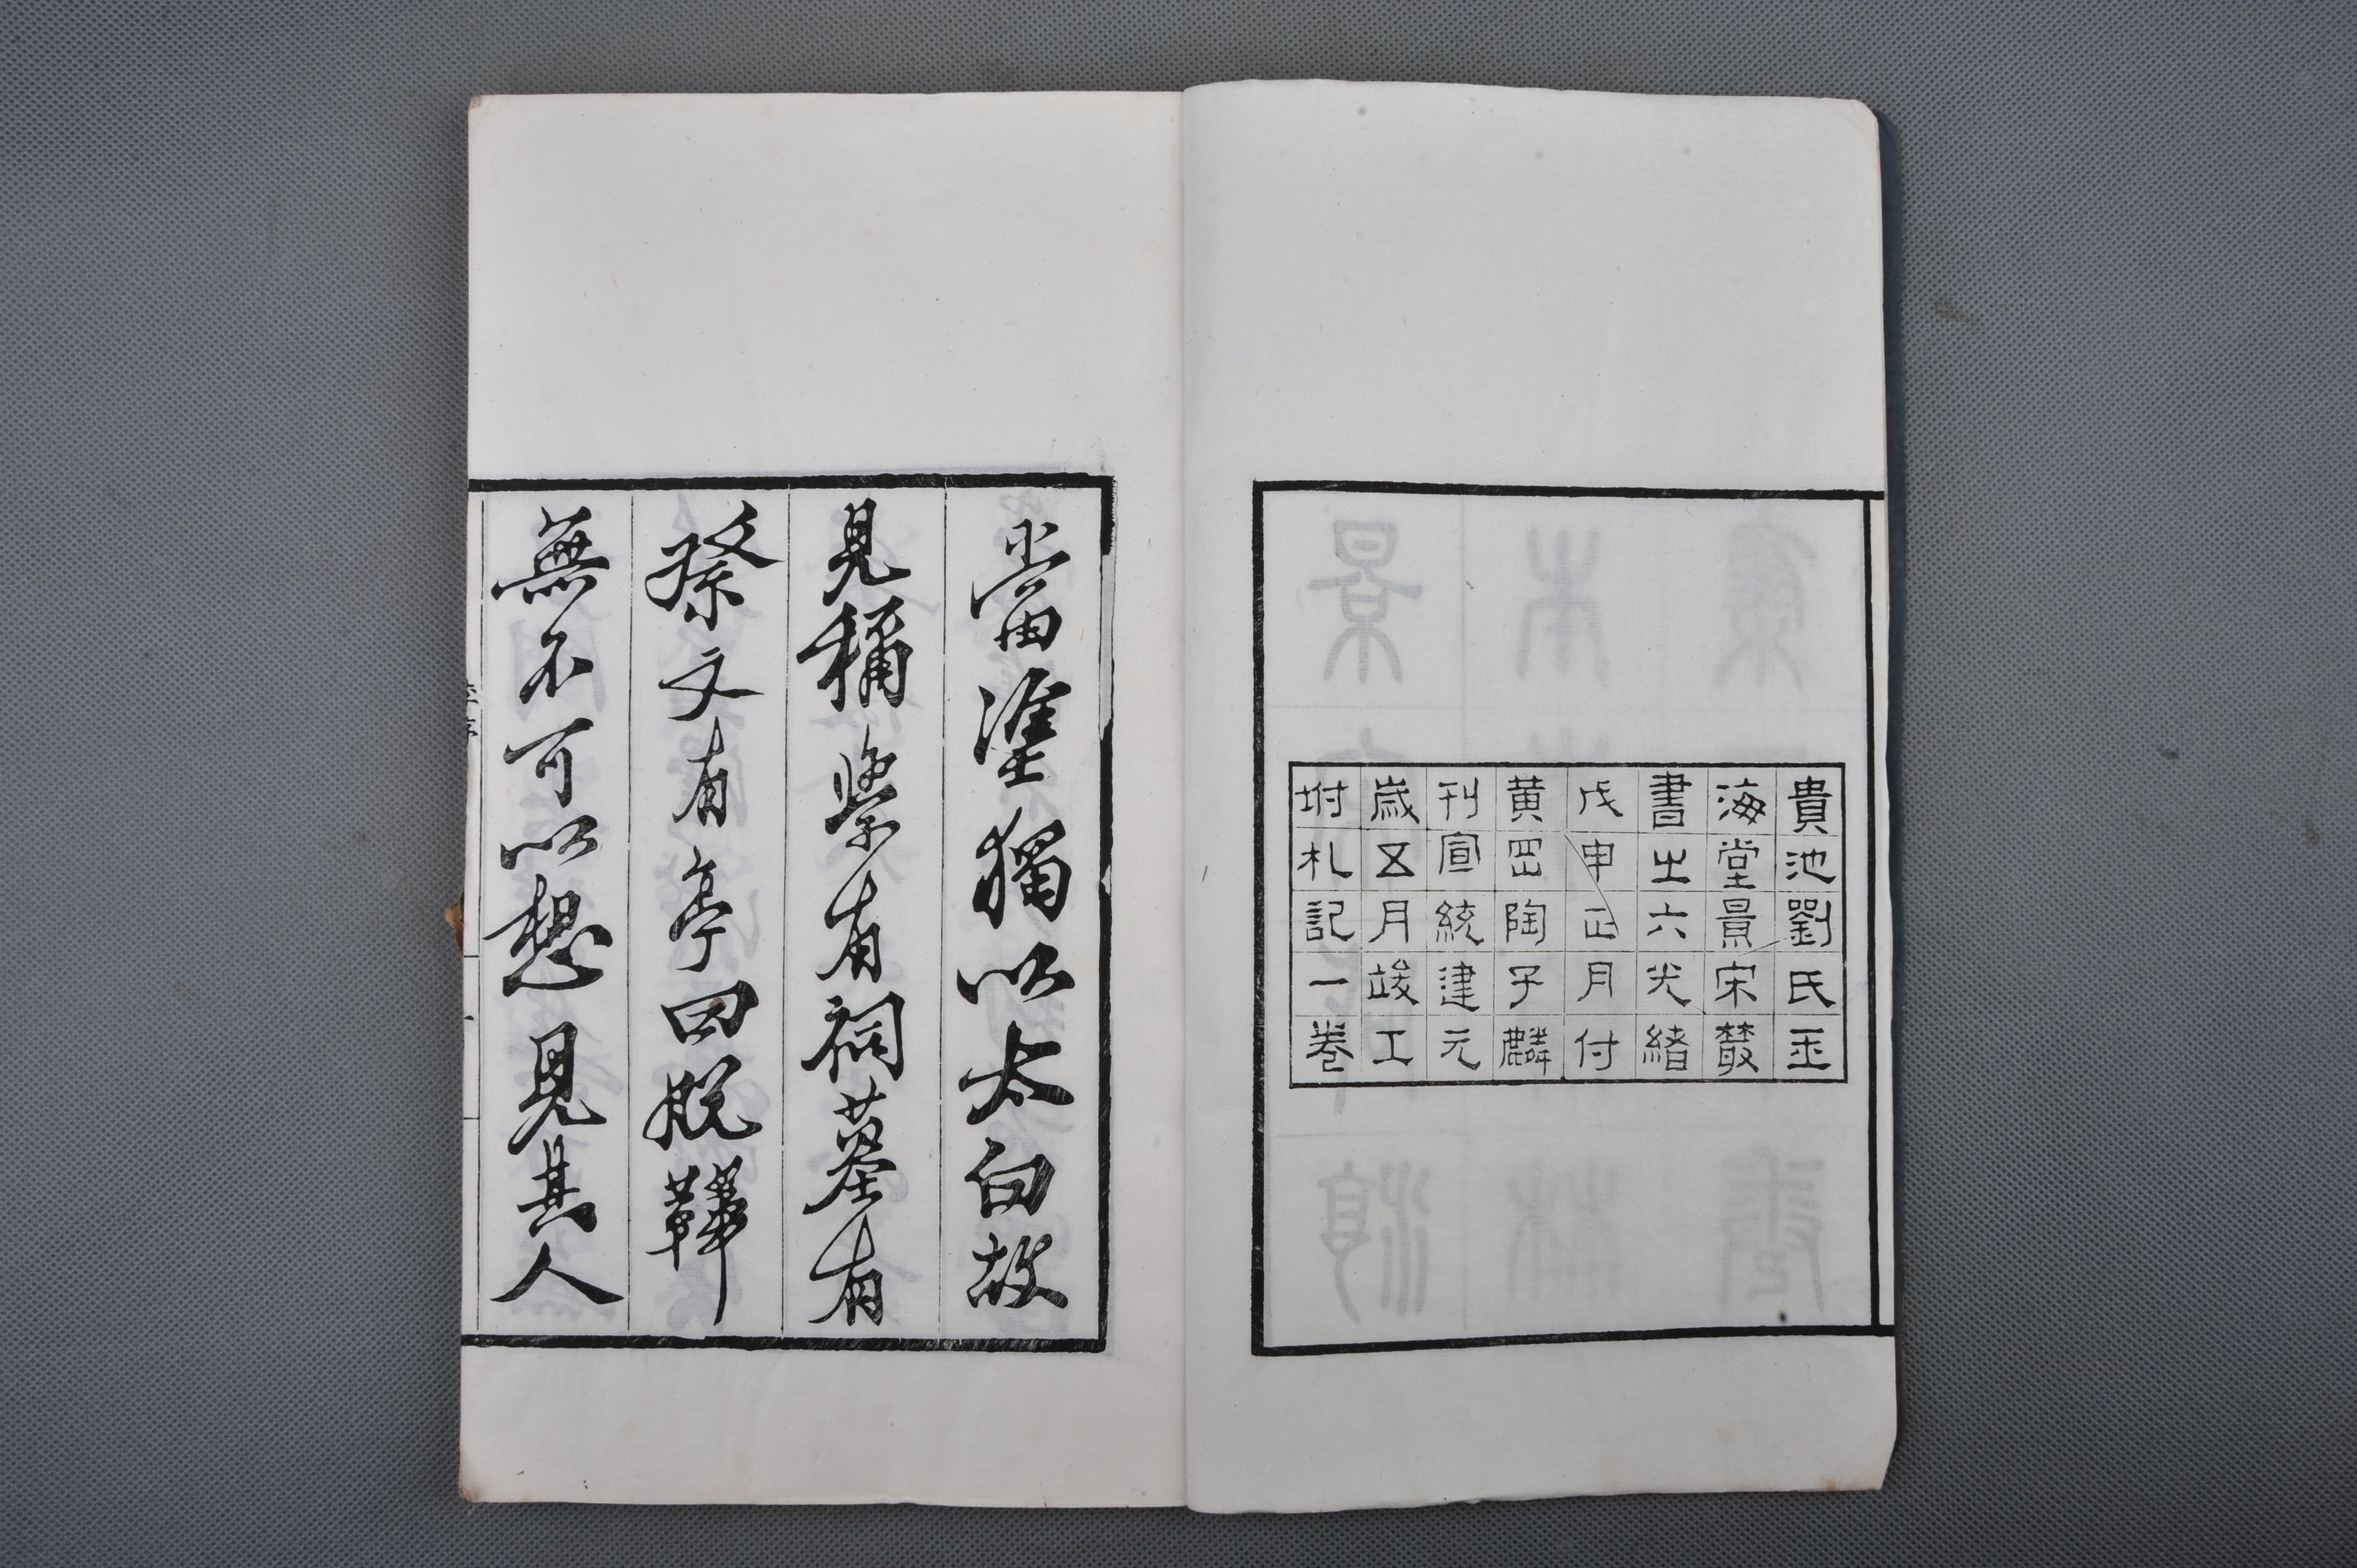 貴池劉氏玉
海堂景宋叢
書之六光緒
戊申正月付
黃岡陶子麟
刊宣統建元
歲五月竣工
坿札記一卷
當塗獨以太白故
見稱縈有祠墓有
祭文有亭曰脫鞾
無不可以想見其人